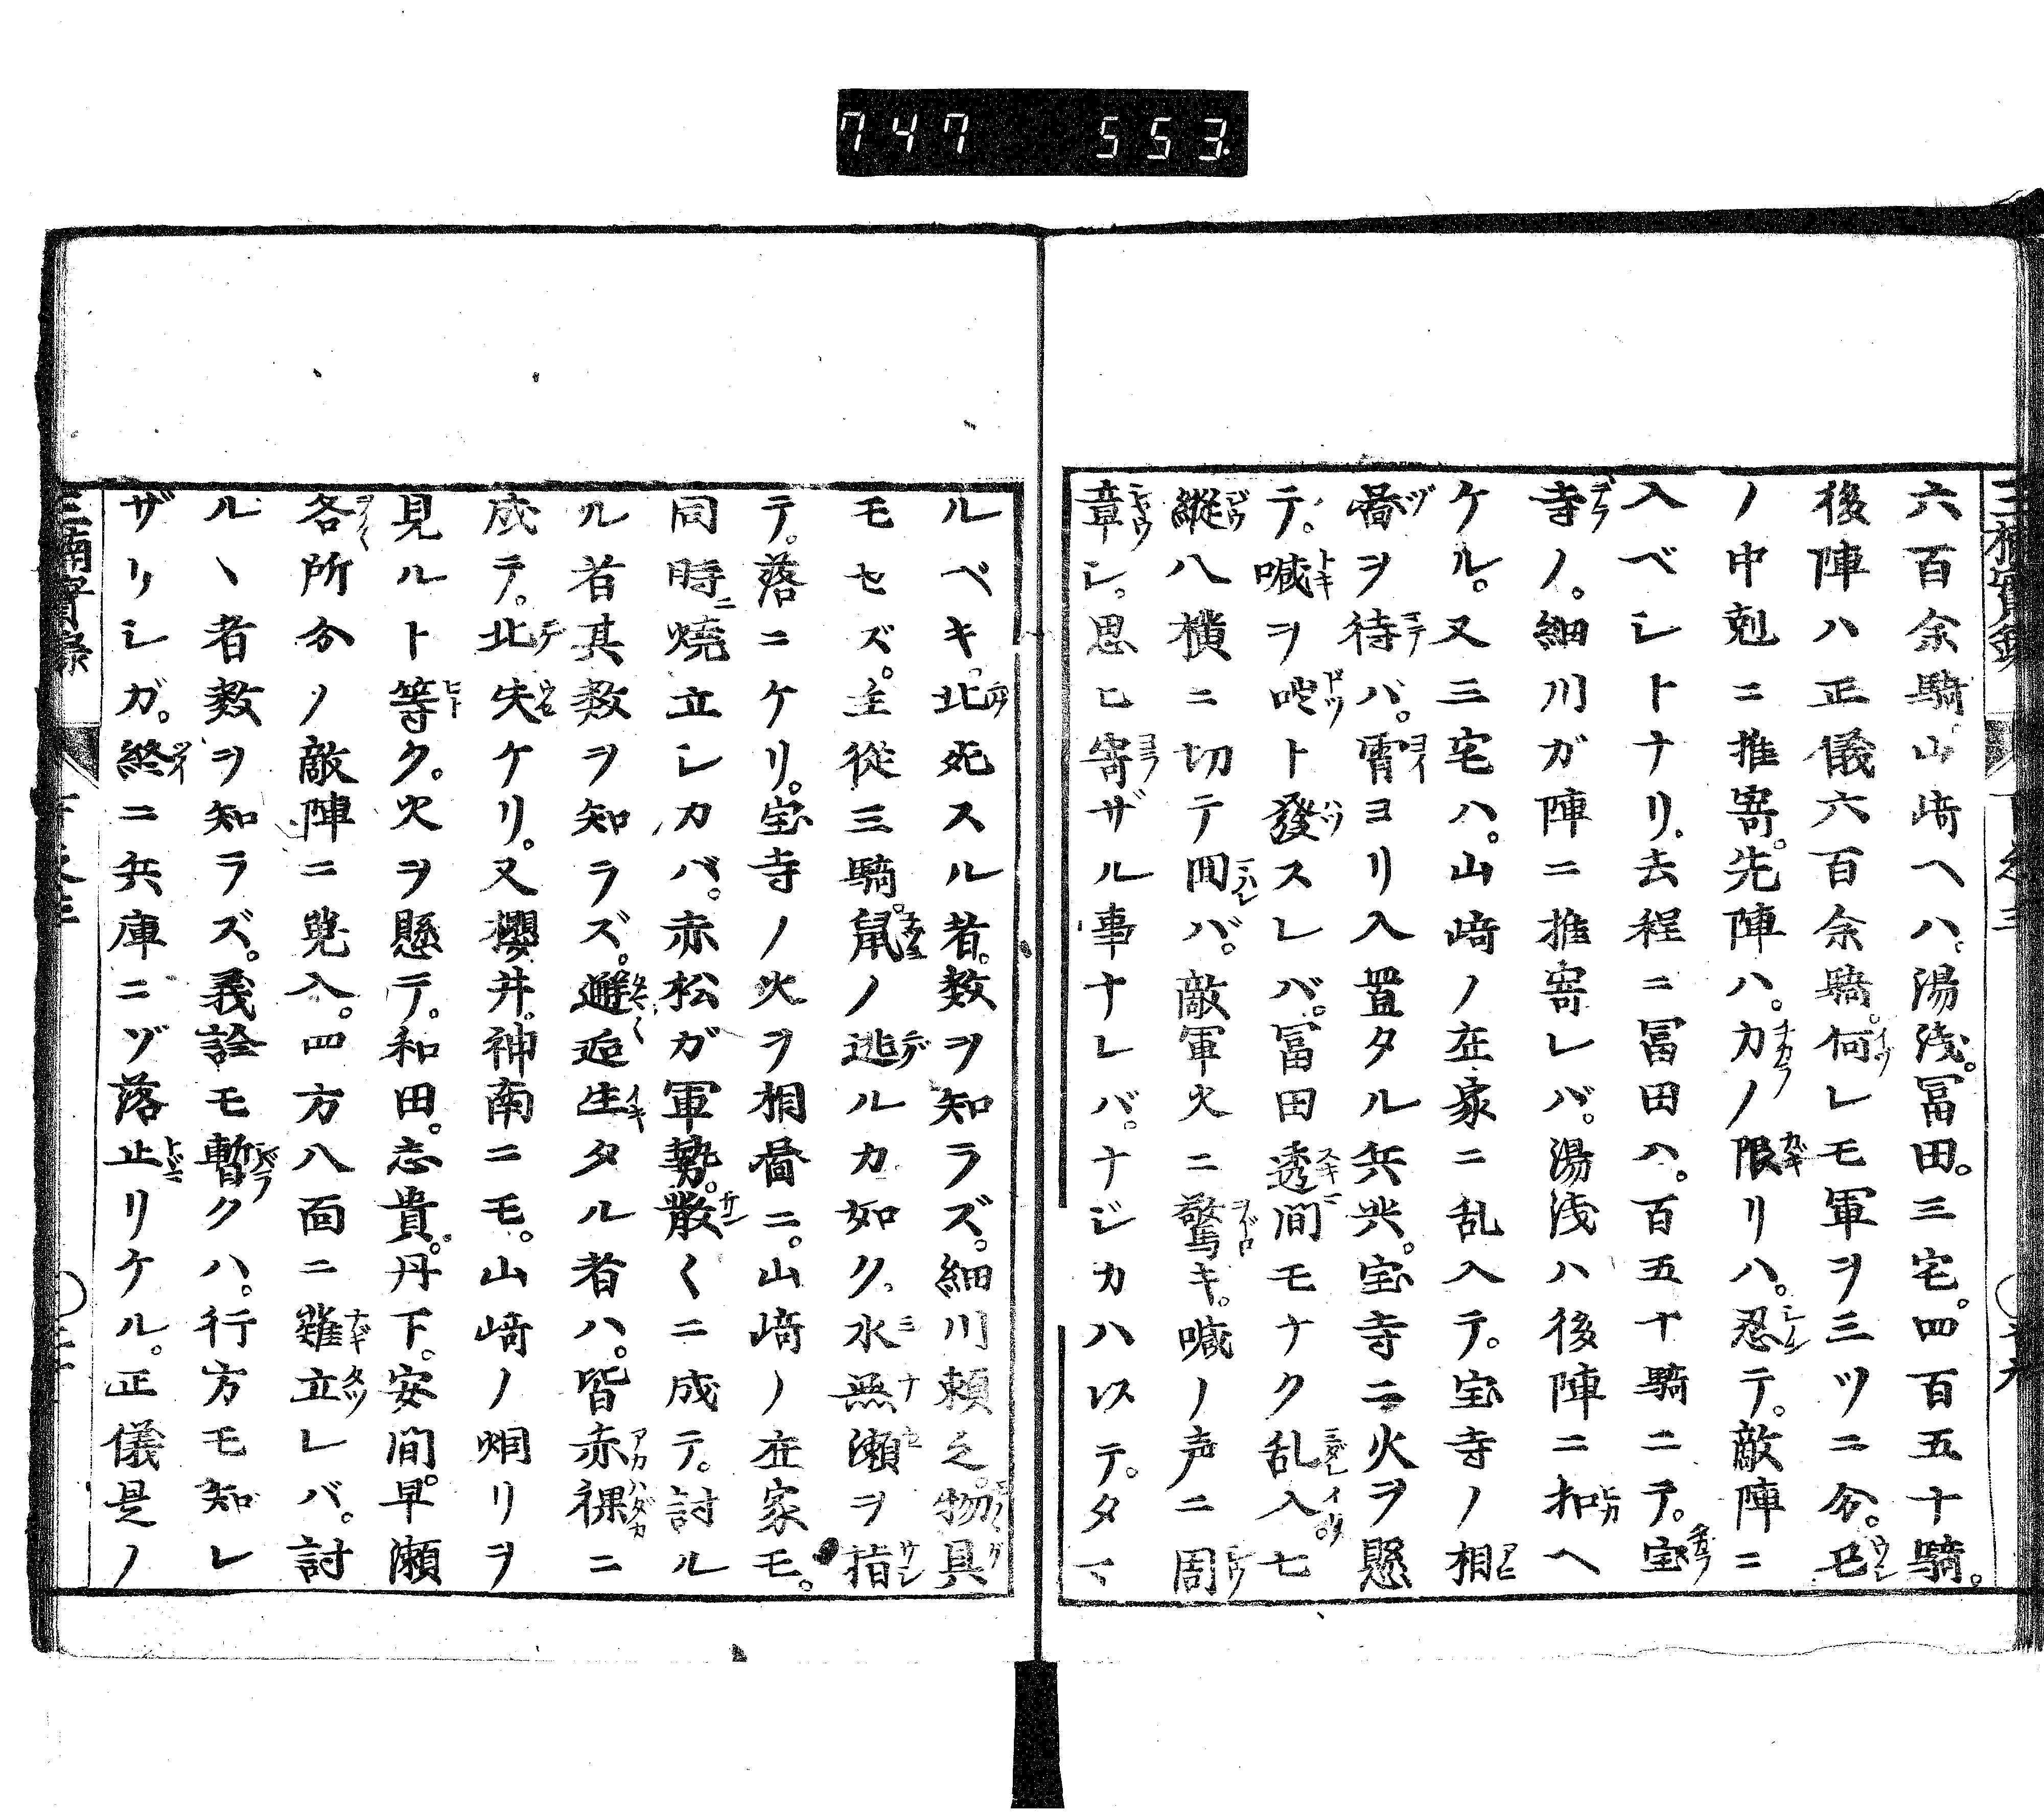 747 553
六百余騎。山﨑ヘハ。湯浅。冨田。三宅。四百五十騎。
後陣ハ正儀六百余騎。何レモ軍ヲ三ツニ分。
ノ中剋ニ推寄。先陣ハ。カノ限リハ。忍テ。敵陣ニ
入ベシトナリ。去程ニ冨田ハ。百五十騎ニテ。宝
寺ノ。細川ガ陣ニ推寄レバ。湯浅ハ後陣ニ扣ヘ
ケル。又三宅ハ。山﨑ノ在家ニ乱入テ。宝寺ノ相
圖ヲ待バ。宵ヨリ入置タル兵共。宝寺ニ火ヲ懸
テ。喊ヲ咄ト發スレバ。冨田透間モナク乱入。七
縦八横ニ切テ回バ。敵軍火ニ驚キ。喊ノ声ニ周
章シ。思ヒ寄ザル事ナレバ。ナジカハ以テ。タマ
ルベキ。北死スル者。数ヲ知ラズ。細川頼之。物具
モセズ。主從三騎。鼠ノ逃ルカ如ク。水無瀬ヲ指
テ。落ニケリ。宝寺ノ火ヲ相圖ニ。山﨑ノ在家モ。
同時ニ燒立シカバ。赤松ガ軍勢。散〱ニ成テ。討ル
ル者其数ヲ知ラズ。避逅生タル者ハ。皆赤裸ニ
成テ。北失ケリ。又櫻井。神南ニモ。山﨑ノ烟リヲ
見ルト等ク。火ヲ懸テ。和田。志貴。丹下。安間。早瀬
各所分ノ敵陣ニ乱入。四方八面ニ薙立レバ。討
ルヽ者数ヲ知ラズ。義詮モ暫クハ。行方モ知レ
ザリシガ。終ニ兵庫ニゾ落止リケル。正儀是ノ